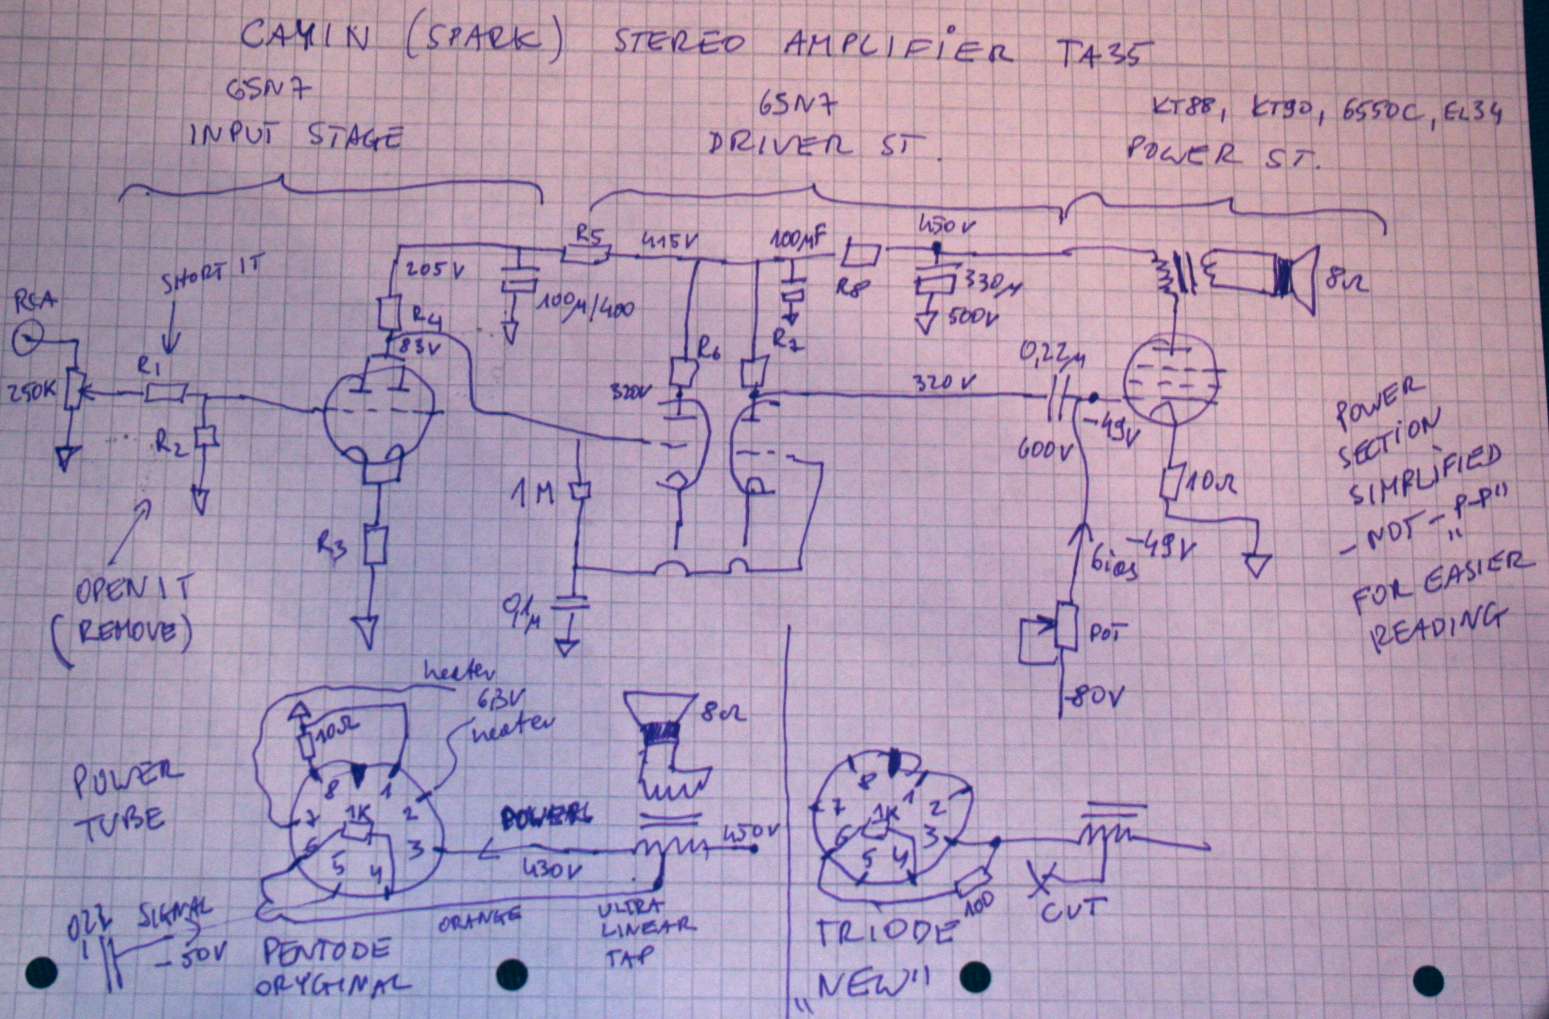 CAYIN (SPARK) STEREO AMPLIFIER TA35
6SN7
INPUT STAGE
6SN7
DRIVER ST.
KT88, KT90, 6550C, EL34
POWER ST.
RCA
SHORT IT
205V
R5
415V
100µF
R8
450V
330µ
500V
8Ω
100µ/400
R4
83V
250K
R1
R2
R6
R7
320V
320V
0,22µ
600V
-49V
10Ω
POWER
SECTION
SIMPLIFIED
- NOT - "P-P"
FOR EASIER
READING
1M
R3
OPEN IT
(REMOVE)
0,1µ
bias -49V
POT
-80V
heater
6,3V
heater
10Ω
8Ω
POWER
TUBE
8 1
7 1K 2
6 3
5 4
POWER
430V
450V
ORANGE
ULTRA
LINEAR
TAP
022
SIGNAL
-50V
PENTODE
ORYGINAL
8 1
7 1K 2
6 3
5 4
100
CUT
TRIODE
"NEW"